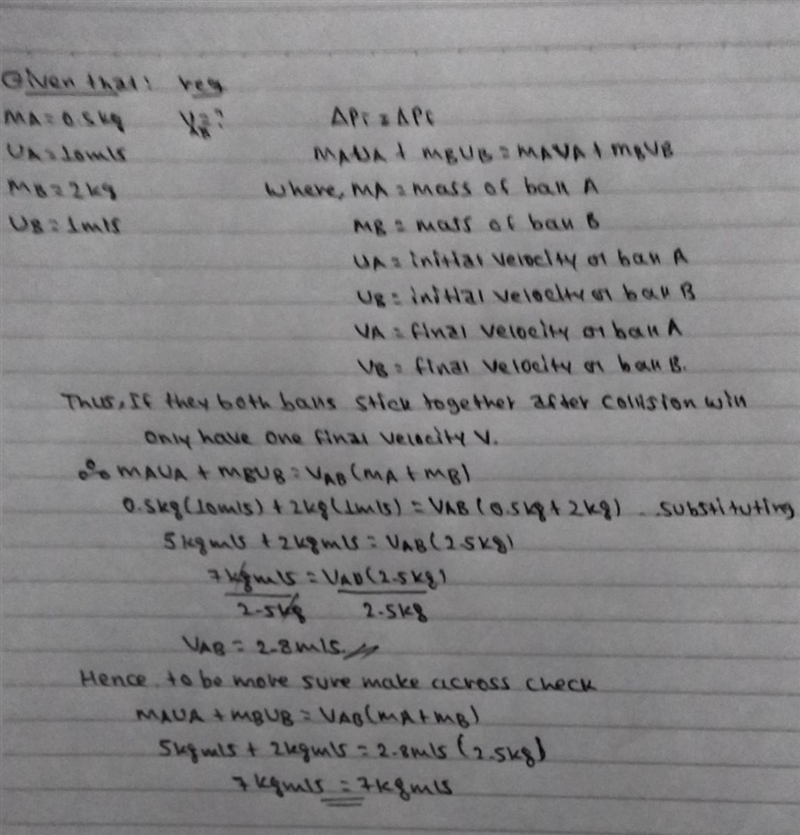 Given that: req
MA = 0.5kg V = ?
ΔPi = ΔPf
UA = 10m/s
MAUA + MBUB = MAVA + MBVB
MB = 2kg
where, MA = mass of ball A
UB = 1m/s
MB = mass of ball B
UA = initial velocity of ball A
UB = initial velocity of ball B
VA = final velocity of ball A
VB = final velocity of ball B.
Thus, If they both balls stick together after collision will
only have one final velocity V.
∴ MAUA + MBUB = VAB (MA + MB)
0.5kg (10m/s) + 2kg (1m/s) = VAB (0.5kg + 2kg) .. substituting
5kgm/s + 2kgm/s = VAB (2.5kg)
7kgm/s = VAB (2.5kg)
2.5kg 2.5kg
VAB = 2.8m/s //
Hence to be more sure make across check
MAUA + MBUB = VAB (MA + MB)
5kgm/s + 2kgm/s = 2.8m/s (2.5kg)
7kgm/s = 7kgm/s